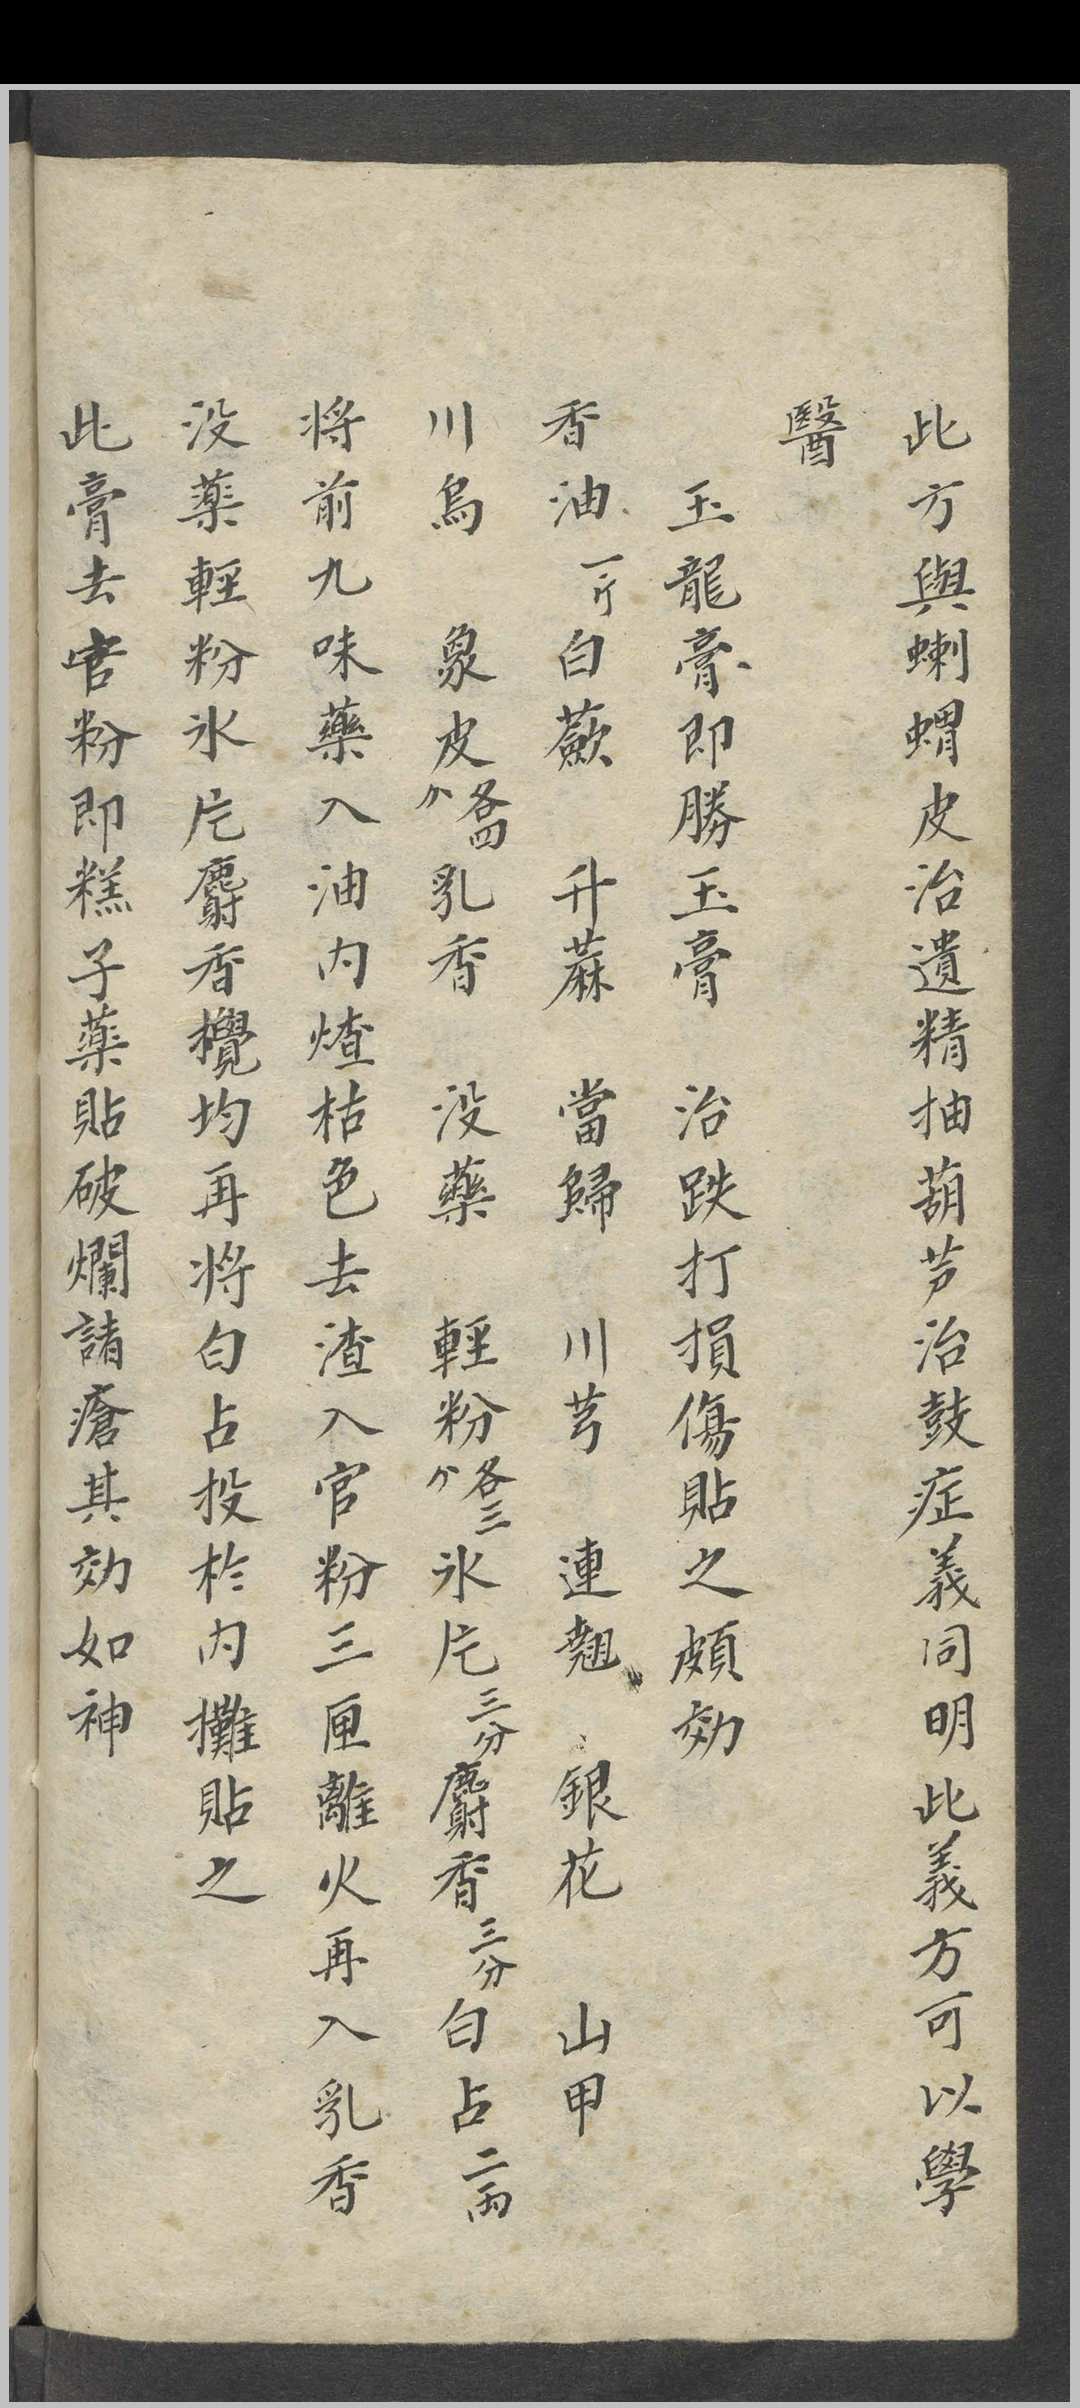 此方與蝲蝟皮治遺精抽葫芦治鼓症義同明此義方可以學
醫
玉龍膏即勝玉膏 治跌打損傷貼之頗効
香油一斤白蘞 升蔴 當歸 川芎 連翹 銀花 山甲
川烏 象皮各四分乳香 没藥 輕粉各三分氷片三分麝香三分白占二兩
将前九味藥入油内煠枯色去渣入官粉三匣離火再入乳香
没薬輕粉氷片麝香攪均再将白占投於内攤貼之
此膏去官粉即糕子薬貼破爛諸瘡其効如神